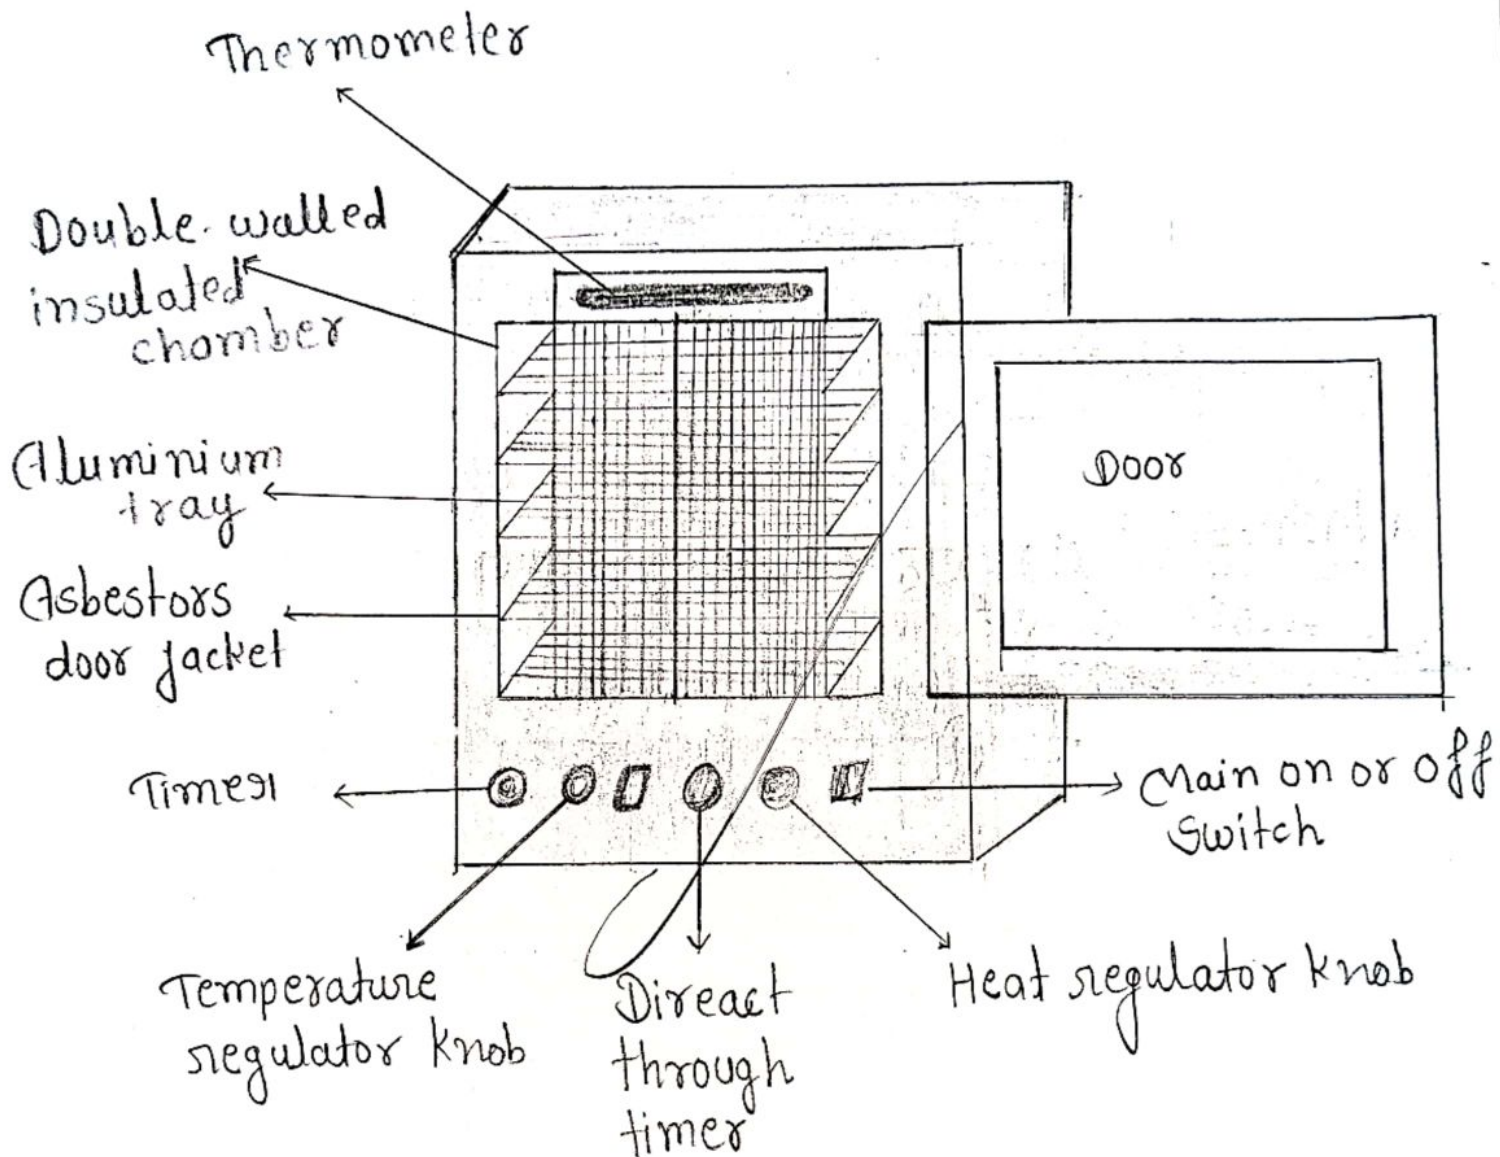 Thermometer
Double-walled
insulated
chomber
Aluminium
tray
Asbestors
door jacket
Door
Timer
Main on or off
Switch
Temperature
regulator knob
Direact
through
timer
Heat regulator knob